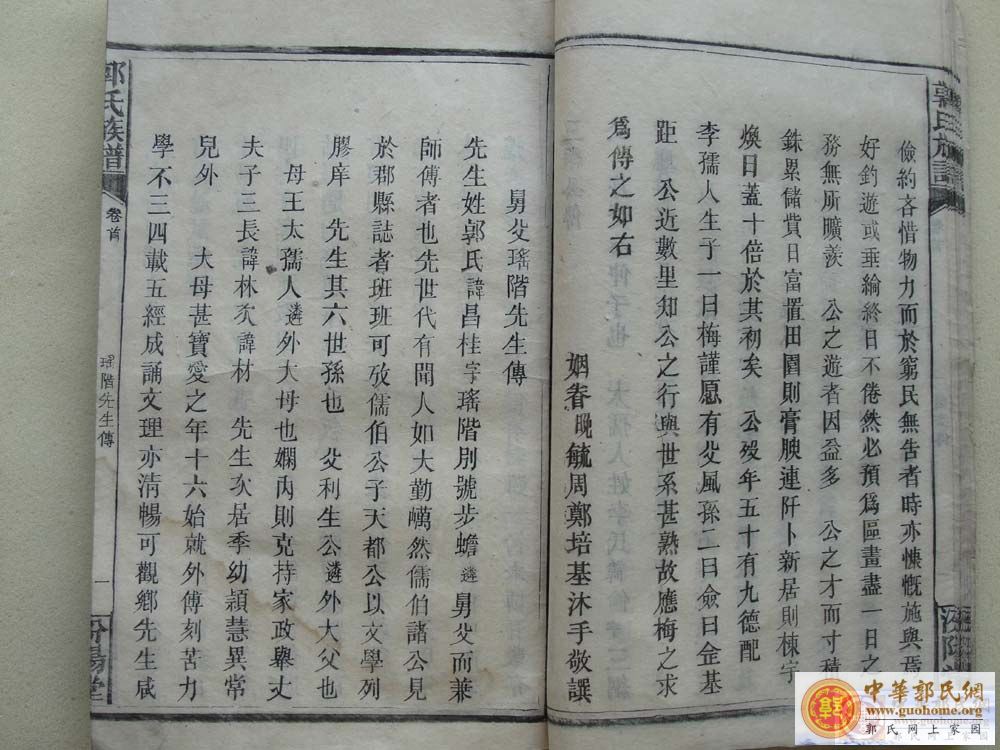 郭氏族譜
儉約吝惜物力而於窮民無告者時亦慷慨施與焉
好釣遊或垂綸終日不倦然必預爲區畫盡一日之
務無所曠羨　公之遊者因益多　公之才而寸積
銖累儲貲日富置田園則膏腴連阡卜新居則棟宇
煥日蓋十倍於其初矣　公歿年五十有九德配
李孺人生子一曰梅謹愿有父風孫二曰僉曰金基
距　公近數里知公之行與世系甚熟故應梅之求
爲傳之如右
姻眷晚毓周鄭培基沐手敬譔
舅父瑤階先生傳
先生姓郭氏諱昌桂字瑤階別號步蟾遴　舅父而兼
師傅者也先世代有聞人如大勤巁然儒伯諸公見
於郡縣誌者班班可攷儒伯公子天都公以文學列
膠庠　先生其六世孫也　父利生公遴外大父也
母王太孺人遴外大母也嫻內則克持家政舉丈
夫子三長諱林次諱材　先生次居季幼穎慧異常
兒外　大母甚寶愛之年十六始就外傅刻苦力
學不三四載五經成誦文理亦清暢可觀鄉先生咸
郭氏族譜
卷首
瑤階先生傳
一
汾陽堂
中華郭氏網
www.guohome.org
郭氏网上家园